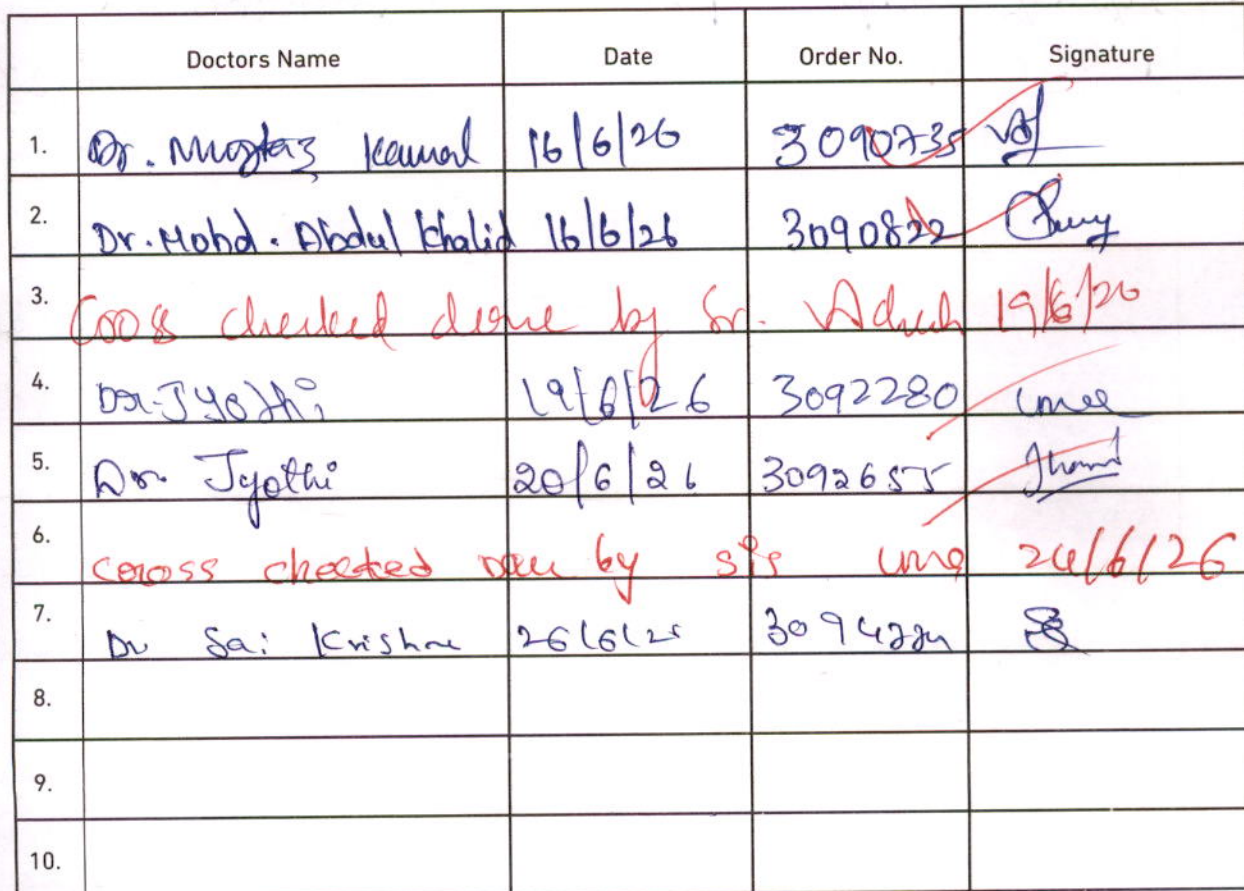 Doctors Name Date Order No. Signature
1. Dr. Mumtaz Kamal 16/6/26 3090735
2. Dr. Mohd. Abdul Khalid 16/6/26 3090822
3. Cross checked done by Sr. 19/6/26
4. Dr. Jyothi 19/6/26 3092280
5. Dr. Jyothi 20/6/26 3092655
6. coross checked by sis uma 24/6/26
7. Dr Sai Krishna 26/6/26
8.
9.
10.